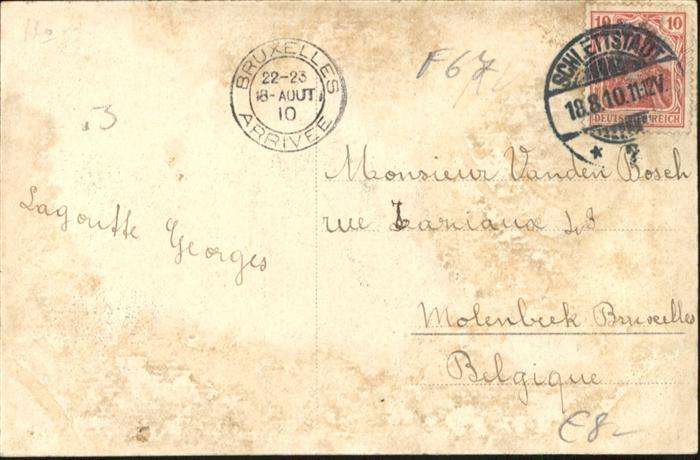 BRUXELLES
22-23
18-AOUT
10
ARRIVEE
F67
10 10
SCHLETTSTADT
18.8.10.11-12V.
DEUTSCHES REICH
* 2
.3
Lagoutte Georges
Monsieur Vanden Bosch
rue 48
Molenbeek Bruxelles
Belgique
€8-